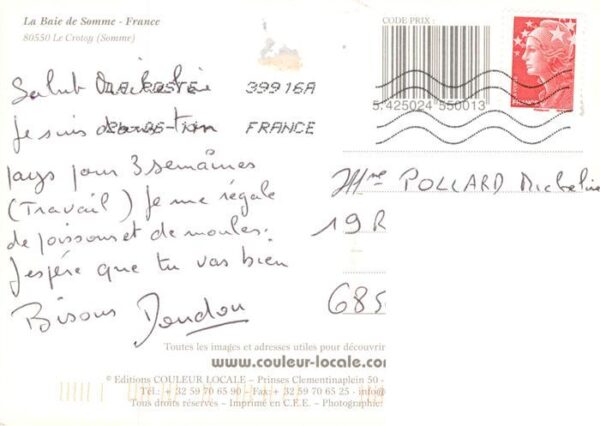 La Baie de Somme - France
80550 Le Crotoy (Somme)
CODE PRIX :
5 425024 550013
LA POSTE 39916A
FRANCE
Salut Micheline
Je suis dans ton
pays pour 3 semaines
(Travail) Je me régale
de poissons et de moules.
J'espère que tu vas bien
Bisous Doudou
Mme POLLARD Micheline
19 R
685
Toutes les images et adresses utiles pour découvrir
www.couleur-locale.co
© Editions COULEUR LOCALE – Prinses Clementinaplein 50 -
Tél + 32 59 70 65 90 - Fax + 32 59 70 65 25 - info@
Tous droits réservés – Imprimé en C.E.E. – Photographie